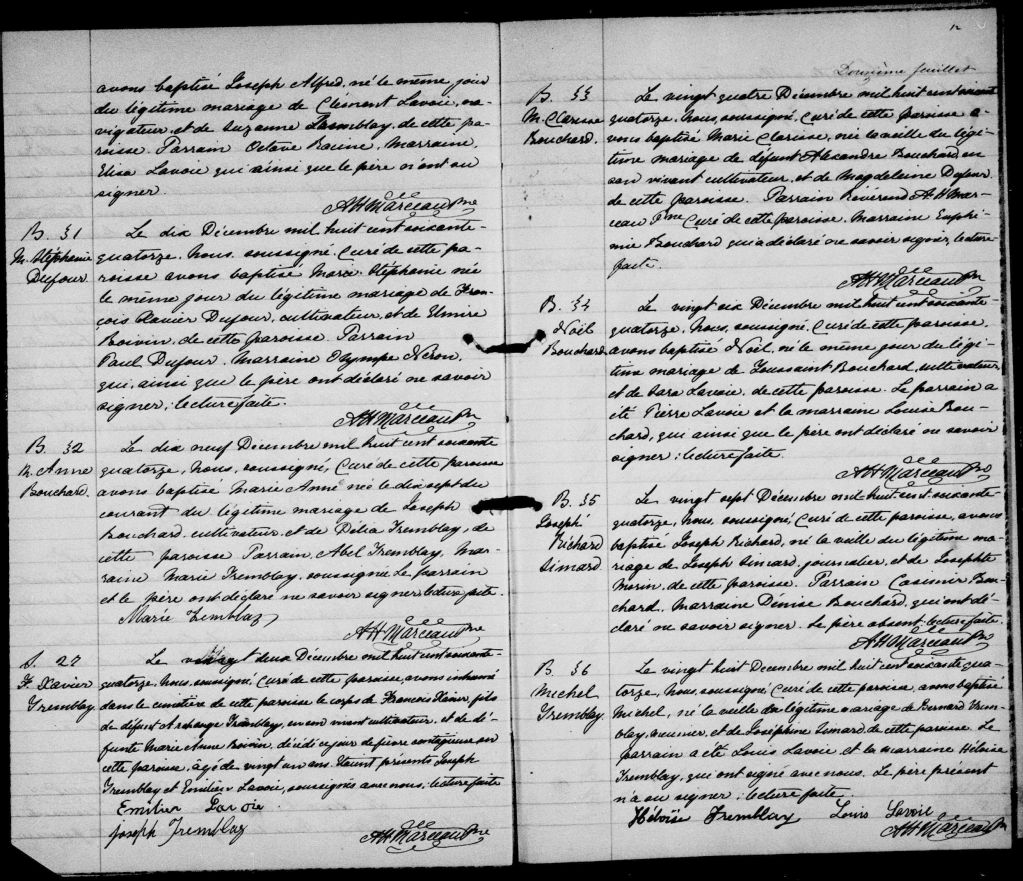 avons baptisé Joseph Alfred, né le même jour
du légitime mariage de Clément Lavoie, na-
vigateur, et de Suzanne Tremblay, de cette pa-
roisse. Parrain Octave Racine, Marraine,
Elisa Lavoie qui ainsi que le père n'ont su
signer.
AHMarceau Ptre
B. 31
M. Stéphanie
Dufour
Le dix Décembre mil huit cent soixante-
quatorze, Nous, soussigné, Curé de cette pa-
roisse avons baptisé Marie Stéphanie née
le même jour du légitime mariage de Fran-
çois Xavier Dufour, cultivateur, et de Elmire
Boivin, de cette paroisse. Parrain
Paul Dufour, Marraine Olympe Néron,
qui, ainsi que le père ont déclaré ne savoir
signer; lecture faite.
AHMarceau Ptre
B. 32
M. Anne
Bouchard.
Le dix neuf Décembre mil huit cent soixante
quatorze, Nous, soussigné, Curé de cette paroisse
avons baptisé Marie Anne née le dix sept du
courant du légitime mariage de Joseph
Bouchard, cultivateur, et de Délia Tremblay, de
cette paroisse. Parrain, Abel Tremblay, Mar-
raine Marie Tremblay, soussignée. Le parrain
et le père ont déclaré ne savoir signer. lecture faite.
Marie Tremblay
AHMarceau Ptre
S. 27
F. Xavier
Tremblay
Le vingt deux Décembre mil huit cent soixante-
quatorze, Nous, soussigné, Curé de cette paroisse, avons inhumé
dans le cimetière de cette paroisse le corps de François Xavier fils
de défunt Archange Tremblay, en son vivant cultivateur, et de dé-
funte Marie Anne Boivin, décédé ce jour de fièvre contagieuse en
cette paroisse, agé de vingt un ans. Etaient présents Joseph
Tremblay et Emilien Lavoie, soussignés avec nous; lecture faite
Emilien Lavoie
Joseph Tremblay
AHMarceau Ptre
12
Douzième feuillet.
B. 33
M. Clarisse
Bouchard.
Le vingt quatre Décembre mil huit cent soixante
quatorze, Nous, soussigné, Curé de cette paroisse a-
vons baptisé Marie Clarisse, née la veille du légi-
time mariage de défunt Alexandre Bouchard, en
son vivant cultivateur, et de Magdeleine Dufour
de cette paroisse. Parrain Révérend A. H. Mar-
ceau Ptre Curé de cette paroisse. Marraine Euphé-
mie Bouchard qui a déclaré ne savoir signer, lecture
faite.
AHMarceau Ptre
B. 34
Noël
Bouchard
Le vingt six Décembre mil huit cent soixante
quatorze, Nous, soussigné, Curé de cette paroisse,
avons baptisé Noël, né le même jour du légi-
time mariage de Toussaint Bouchard, cultivateur,
et de Sara Lavoie, de cette paroisse. Le parrain a
été Pierre Lavoie et la marraine Louise Bou-
chard, qui ainsi que le père ont déclaré ne savoir
signer; lecture faite.
AHMarceau Ptre
B. 35
Joseph
Richard
Simard
Le vingt sept Décembre mil huit cent soixante-
quatorze, Nous, soussigné, Curé de cette paroisse, avons
baptisé Joseph Richard, né la veille du légitime ma-
riage de Joseph Simard, journalier, et de Josephte
Morin, de cette paroisse. Parrain Casimir Bou-
chard, Marraine Dénise Bouchard, qui ont dé-
claré ne savoir signer. Le père absent. lecture faite.
AHMarceau Ptre
B. 36
Michel
Tremblay.
Le vingt huit Décembre mil huit cent soixante qua-
torze, Nous, soussigné, Curé de cette paroisse, avons baptisé
Michel, né la veille du légitime mariage de Trem-
blay, meunier, et de Joséphine Simard, de cette paroisse. Le
parrain a été Louis Lavoie et la marraine Héloïse
Tremblay, qui ont signé avec nous. Le père présent
n'a su signer; lecture faite.
Héloïse Tremblay Louis Lavoie
AHMarceau Ptre